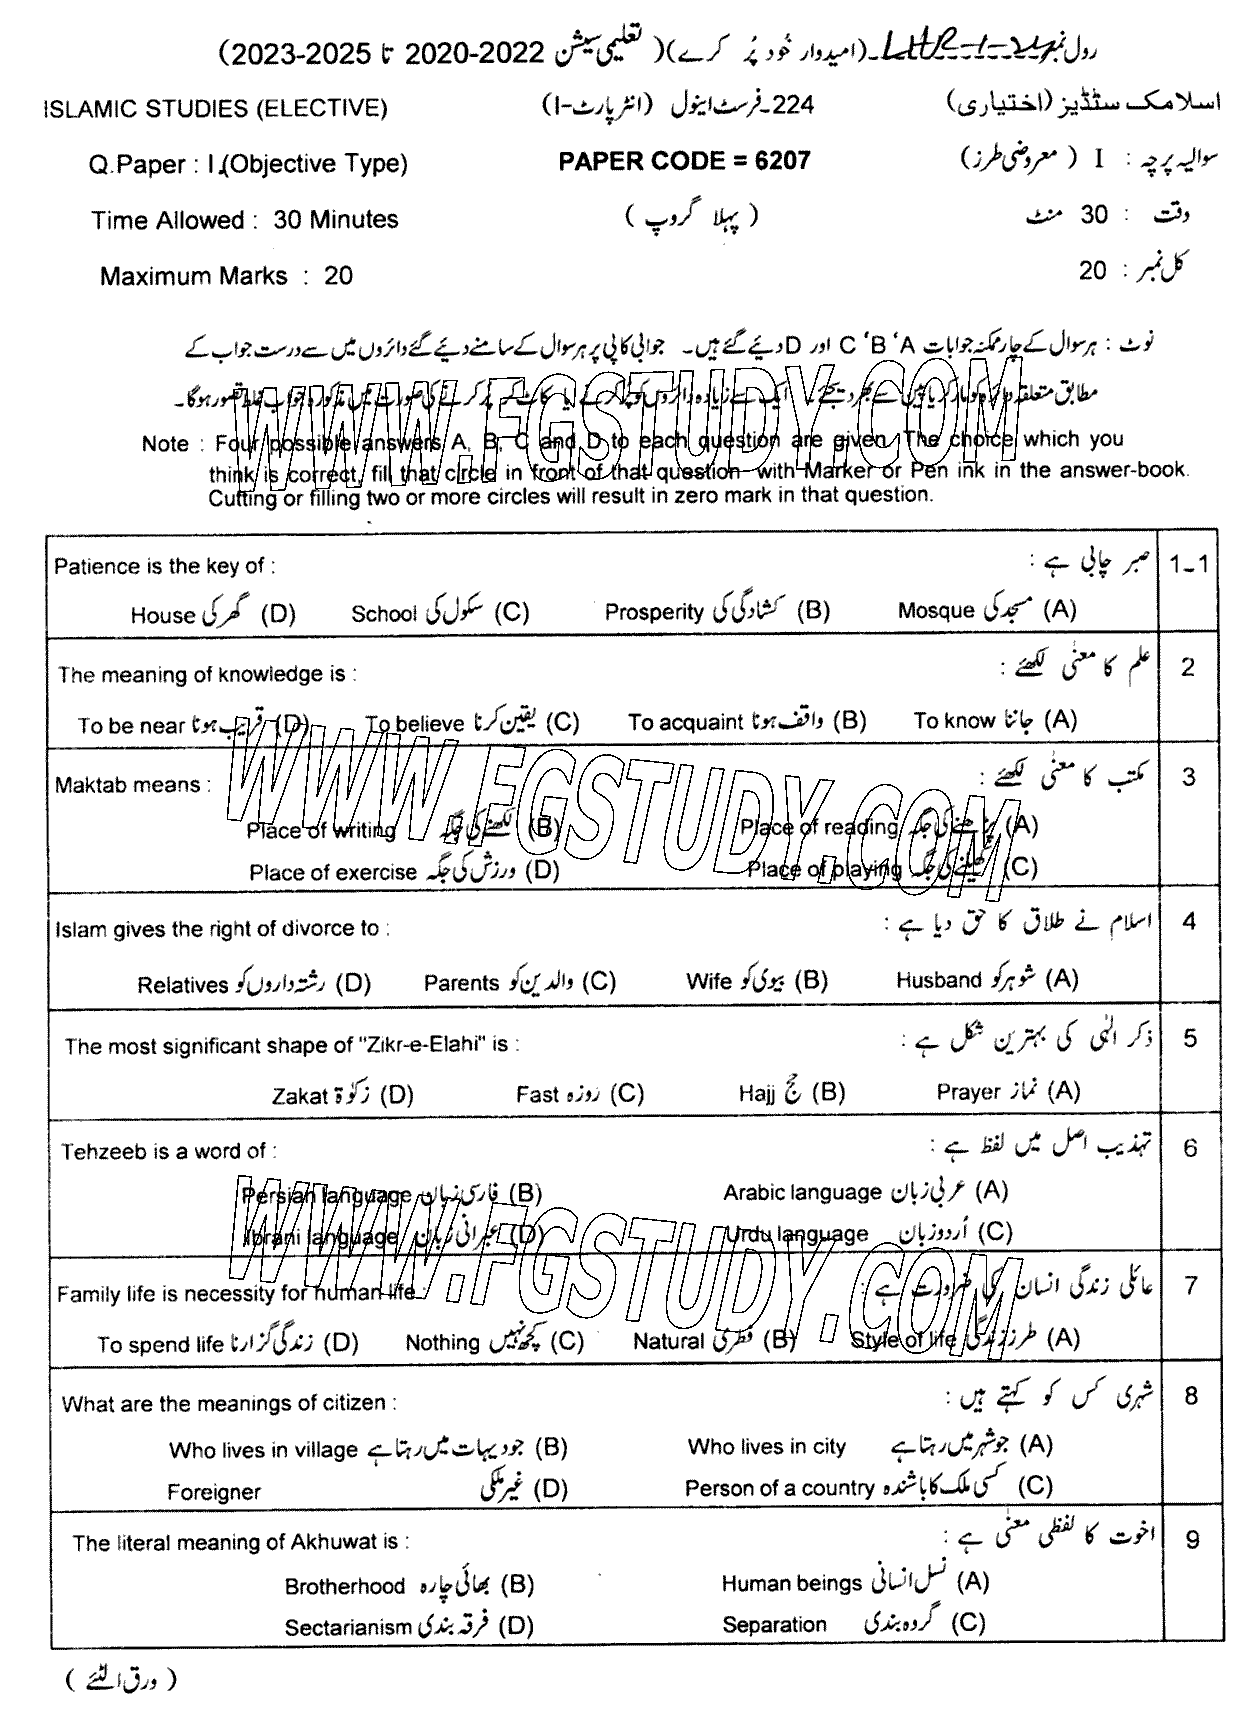 رول نمبر LHR-1-24 ـ(امیدوار خُود پُر کرے)( تعلیمی سیشن 2022-2020 تا 2025-2023)
ISLAMIC STUDIES (ELECTIVE) 224ـ فرسٹ اینول (انٹر پارٹ-I) اسلامک سٹڈیز (اختیاری)
Q.Paper : I (Objective Type) PAPER CODE = 6207 سوالیہ پرچہ : I ( معروضی طرز)
Time Allowed : 30 Minutes ( پہلا گروپ ) وقت : 30 منٹ
Maximum Marks : 20 کل نمبر : 20
نوٹ : ہر سوال کے چار ممکنہ جوابات A ‘B ‘C اور D دیئے گئے ہیں۔ جوابی کاپی پر ہر سوال کے سامنے دیئے گئے دائروں میں سے درست جواب کے
مطابق متعلقہ دائرہ کو مارکر یا پین سے بھر دیجئے۔ ایک سے زیادہ دائروں کو پُر کرنے یا کاٹ کر پُر کرنے کی صورت میں مذکورہ جواب غلط تصور ہوگا۔
Note : Four possible answers A, B, C and D to each question are given. The choice which you
think is correct, fill that circle in front of that question with Marker or Pen ink in the answer-book.
Cutting or filling two or more circles will result in zero mark in that question.
WWW.FGSTUDY.COM
Patience is the key of : صبر چابی ہے : 1ـ1
House گھر کی (D) School سکول کی (C) Prosperity کشادگی کی (B) Mosque مسجد کی (A)
The meaning of knowledge is : علم کا معنٰی لکھئے : 2
To be near قریب ہونا (D) To believe یقین کرنا (C) To acquaint واقف ہونا (B) To know جاننا (A)
WWW.FGSTUDY.COM
Maktab means : مکتب کا معنٰی لکھئے : 3
Place of writing لکھنے کی جگہ (B) Place of reading پڑھنے کی جگہ (A)
Place of exercise ورزش کی جگہ (D) Place of playing کھیلنے کی جگہ (C)
Islam gives the right of divorce to : اسلام نے طلاق کا حق دیا ہے : 4
Relatives رشتہ داروں کو (D) Parents والدین کو (C) Wife بیوی کو (B) Husband شوہر کو (A)
The most significant shape of "Zikr-e-Elahi" is : ذکر الٰہی کی بہترین شکل ہے : 5
Zakat زکوٰۃ (D) Fast روزہ (C) Hajj حج (B) Prayer نماز (A)
Tehzeeb is a word of : تہذیب اصل میں لفظ ہے : 6
Persian language فارسی زبان (B) Arabic language عربی زبان (A)
Ibrani language عبرانی زبان (D) Urdu language اُردو زبان (C)
WWW.FGSTUDY.COM
Family life is necessity for human life عائلی زندگی انسان کی ضرورت ہے : 7
To spend life زندگی گزارنا (D) Nothing کچھ نہیں (C) Natural فطری (B) Style of life طرز زندگی (A)
What are the meanings of citizen : شہری کس کو کہتے ہیں : 8
Who lives in village جو دیہات میں رہتا ہے (B) Who lives in city جو شہر میں رہتا ہے (A)
Foreigner غیر ملکی (D) Person of a country کسی ملک کا باشندہ (C)
The literal meaning of Akhuwat is : اخوت کا لفظی معنٰی ہے : 9
Brotherhood بھائی چارہ (B) Human beings نسل انسانی (A)
Sectarianism فرقہ بندی (D) Separation گروہ بندی (C)
( ورق الٹئے )